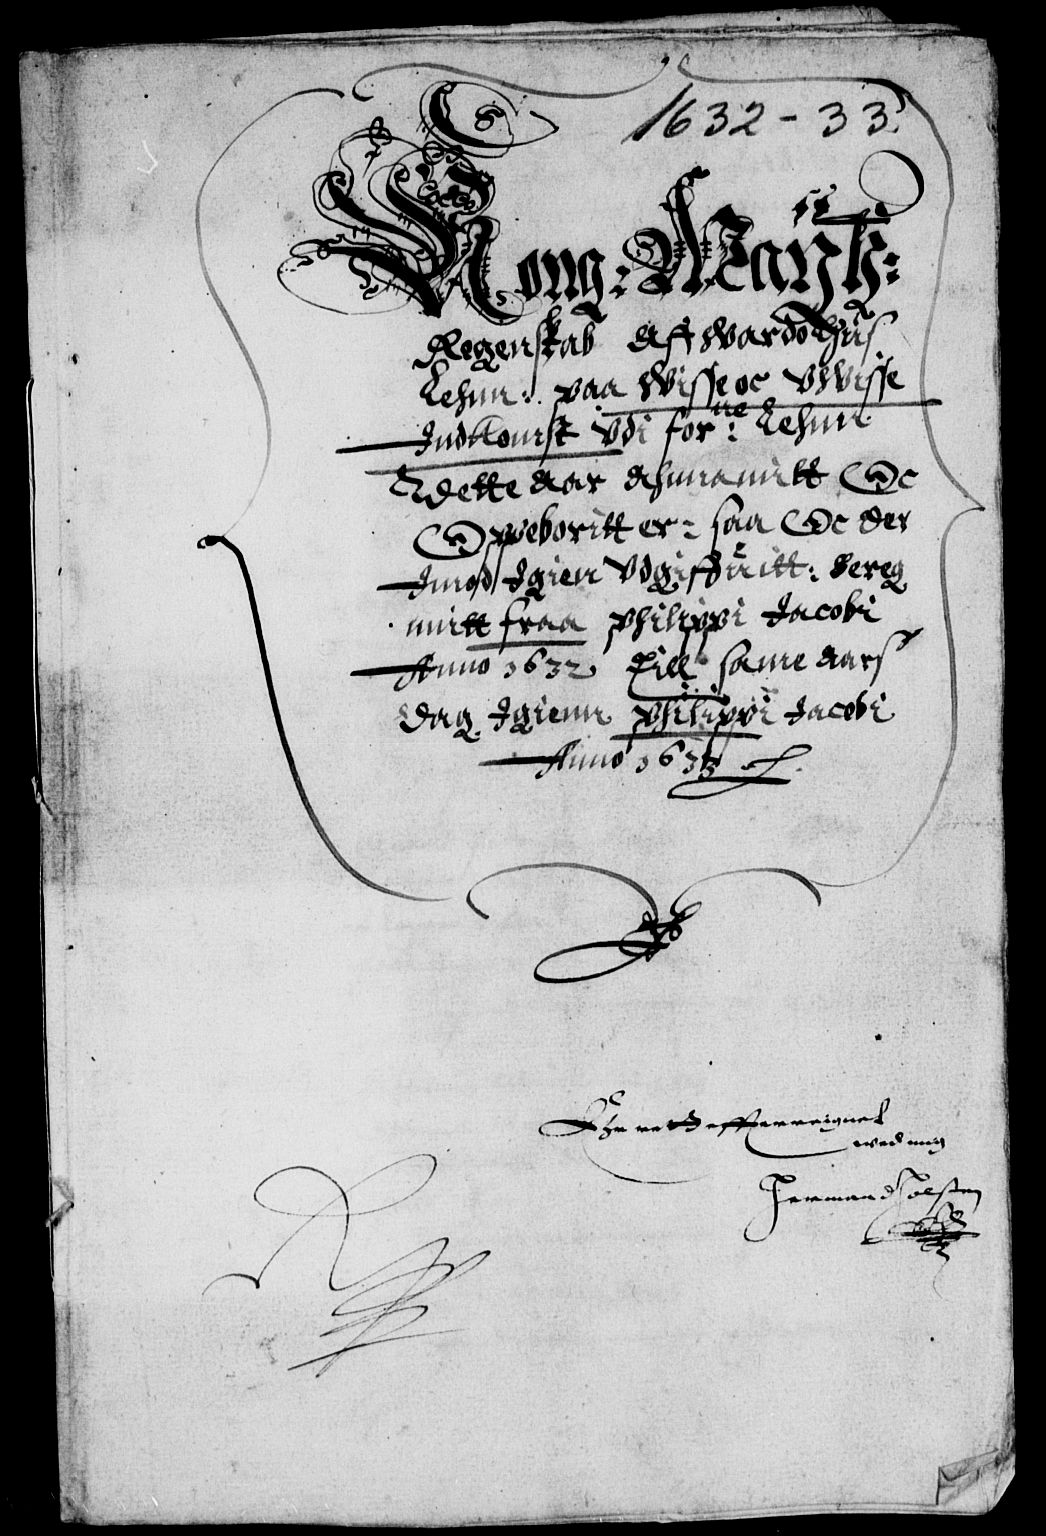 1632 - 33.
Kong: Maytz:
Regenskab aff Wardøhus
Lehnn: paa Wisse oc Vwisse
Indkomst Vdi forne: Lehnn
Udette aar Ahnnammitt Oc
Oppeboritt er: saa Oc der
Imod Igien Vdgiffuitt: bereg
nnitt fraa Philippi Jacobi
Anno 1632 Till same aars
dag Igienn Philippi Jacobi
Anno 1633
wed mig
Herman Holsten